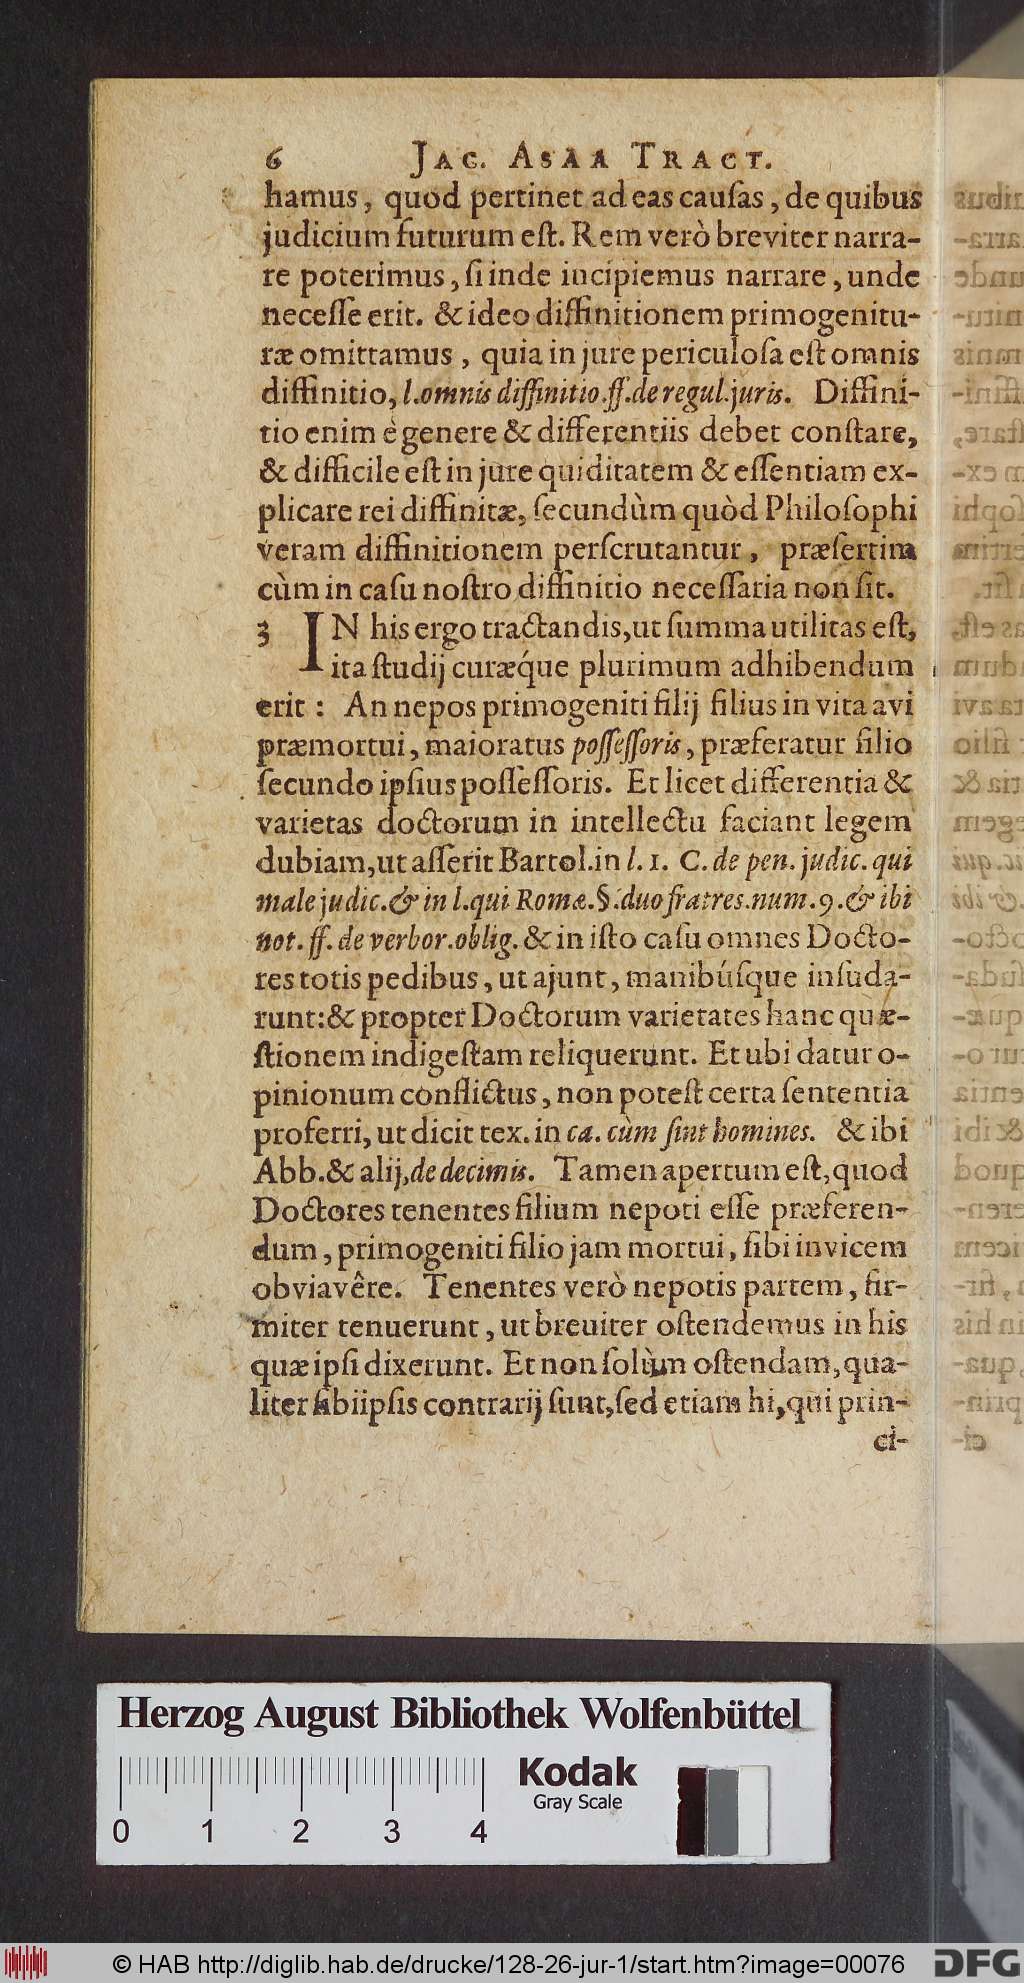 6 JAC. ASAA TRACT.
hamus, quod pertinet ad eas cauſas, de quibus
judicium futurum eſt. Rem verò breviter narra-
re poterimus, ſi inde incipiemus narrare, unde
neceſſe erit. & ideo diffinitionem primogenitu-
ræ omittamus, quia in jure periculoſa eſt omnis
diffinitio, l. omnis diffinitio. ff. de regul. juris. Diffini-
tio enim è genere & differentiis debet conſtare,
& difficile eſt in jure quiditatem & eſſentiam ex-
plicare rei diffinitæ, ſecundùm quòd Philoſophi
veram diffinitionem perſcrutantur, præſertim
cùm in caſu noſtro diffinitio neceſſaria non ſit.
3 IN his ergo tractandis, ut ſumma utilitas eſt,
ita ſtudij curæq́ue plurimum adhibendum
erit : An nepos primogeniti filij filius in vita avi
præmortui, maioratus poſſeſſoris, præferatur filio
ſecundo ipſius poſſeſſoris. Et licet differentia &
varietas doctorum in intellectu faciant legem
dubiam, ut aſſerit Bartol. in l. 1. C. de pen. judic. qui
male judic. & in l. qui Romæ. §. duo fratres. num. 9. & ibi
not. ff. de verbor. oblig. & in iſto caſu omnes Docto-
res totis pedibus, ut ajunt, manibúſque inſuda-
runt: & propter Doctorum varietates hanc quæ-
ſtionem indigeſtam reliquerunt. Et ubi datur o-
pinionum conflictus, non poteſt certa ſententia
proferri, ut dicit tex. in ca. cùm ſint homines. & ibi
Abb. & alij, de decimis. Tamen apertum eſt, quod
Doctores tenentes filium nepoti eſſe præferen-
dum, primogeniti filio jam mortui, ſibi invicem
obviavêre. Tenentes verò nepotis partem, fir-
miter tenuerunt, ut breuiter oſtendemus in his
quæ ipſi dixerunt. Et non ſolùm oſtendam, qua-
liter ſibiipſis contrarij ſunt, ſed etiam hi, qui prin-
ci-
Herzog August Bibliothek Wolfenbüttel
Kodak
Gray Scale
0 1 2 3 4
© HAB http://diglib.hab.de/drucke/128-26-jur-1/start.htm?image=00076
DFG